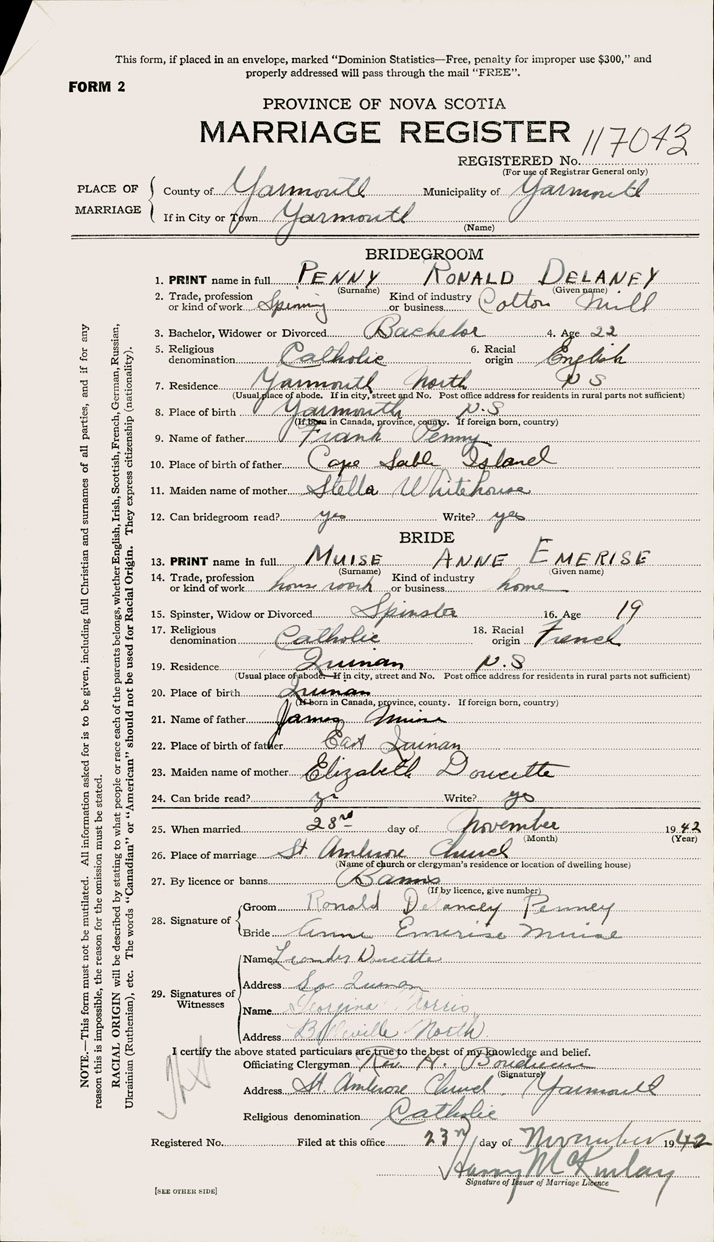 This form, if placed in an envelope, marked "Dominion Statistics—Free, penalty for improper use $300," and
properly addressed will pass through the mail "FREE".
FORM 2
PROVINCE OF NOVA SCOTIA
MARRIAGE REGISTER 117043
REGISTERED No.
(For use of Registrar General only)
PLACE OF MARRIAGE
County of Yarmouth Municipality of Yarmouth
If in City or Town Yarmouth
(Name)
BRIDEGROOM
1. PRINT name in full PENNY RONALD DELANEY
(Surname) (Given name)
2. Trade, profession or kind of work Spinning Kind of industry or business Cotton Mill
3. Bachelor, Widower or Divorced Bachelor 4. Age 22
5. Religious denomination Catholic 6. Racial origin English
7. Residence Yarmouth North N S
(Usual place of abode. If in city, street and No. Post office address for residents in rural parts not sufficient)
8. Place of birth Yarmouth N.S
(If born in Canada, province, county. If foreign born, country)
9. Name of father Frank Penny
10. Place of birth of father Cape Sable Island
11. Maiden name of mother Stella Whitehouse
12. Can bridegroom read? yes Write? yes
BRIDE
13. PRINT name in full MUISE ANNE EMERISE
(Surname) (Given name)
14. Trade, profession or kind of work house work Kind of industry or business home
15. Spinster, Widow or Divorced Spinster 16. Age 19
17. Religious denomination Catholic 18. Racial origin French
19. Residence Quinan N.S
(Usual place of abode. If in city, street and No. Post office address for residents in rural parts not sufficient)
20. Place of birth Quinan
(If born in Canada, province, county. If foreign born, country)
21. Name of father James Muise
22. Place of birth of father East Quinan
23. Maiden name of mother Elizabeth Doucette
24. Can bride read? yes Write? yes
25. When married 23rd day of November 1942
(Month) (Year)
26. Place of marriage St Ambrose Church
(Name of church or clergyman's residence or location of dwelling house)
27. By licence or banns Banns
(If by licence, give number)
28. Signature of
Groom Ronald Delancey Penney
Bride Anne Emerise Muise
29. Signatures of Witnesses
Name Leander Doucette
Address So. Quinan
Name Georgina
Address Belleville North
I certify the above stated particulars are true to the best of my knowledge and belief.
Officiating Clergyman Rev. A.
(Signature)
Address St. Ambrose Church, Yarmouth
Religious denomination Catholic
Registered No. Filed at this office 23rd day of November 1942
Harry McKinlay
Signature of Issuer of Marriage Licence
[SEE OTHER SIDE]
NOTE.—This form must not be mutilated. All information asked for is to be given, including full Christian and surnames of all parties, and if for any
reason this is impossible, the reason for the omission must be stated.
RACIAL ORIGIN will be described by stating to what people or race each of the parents belongs, whether English, Irish, Scottish, French, German, Russian,
Ukrainian (Ruthenian), etc. The words "Canadian" or "American" should not be used for Racial Origin. They express citizenship (nationality).